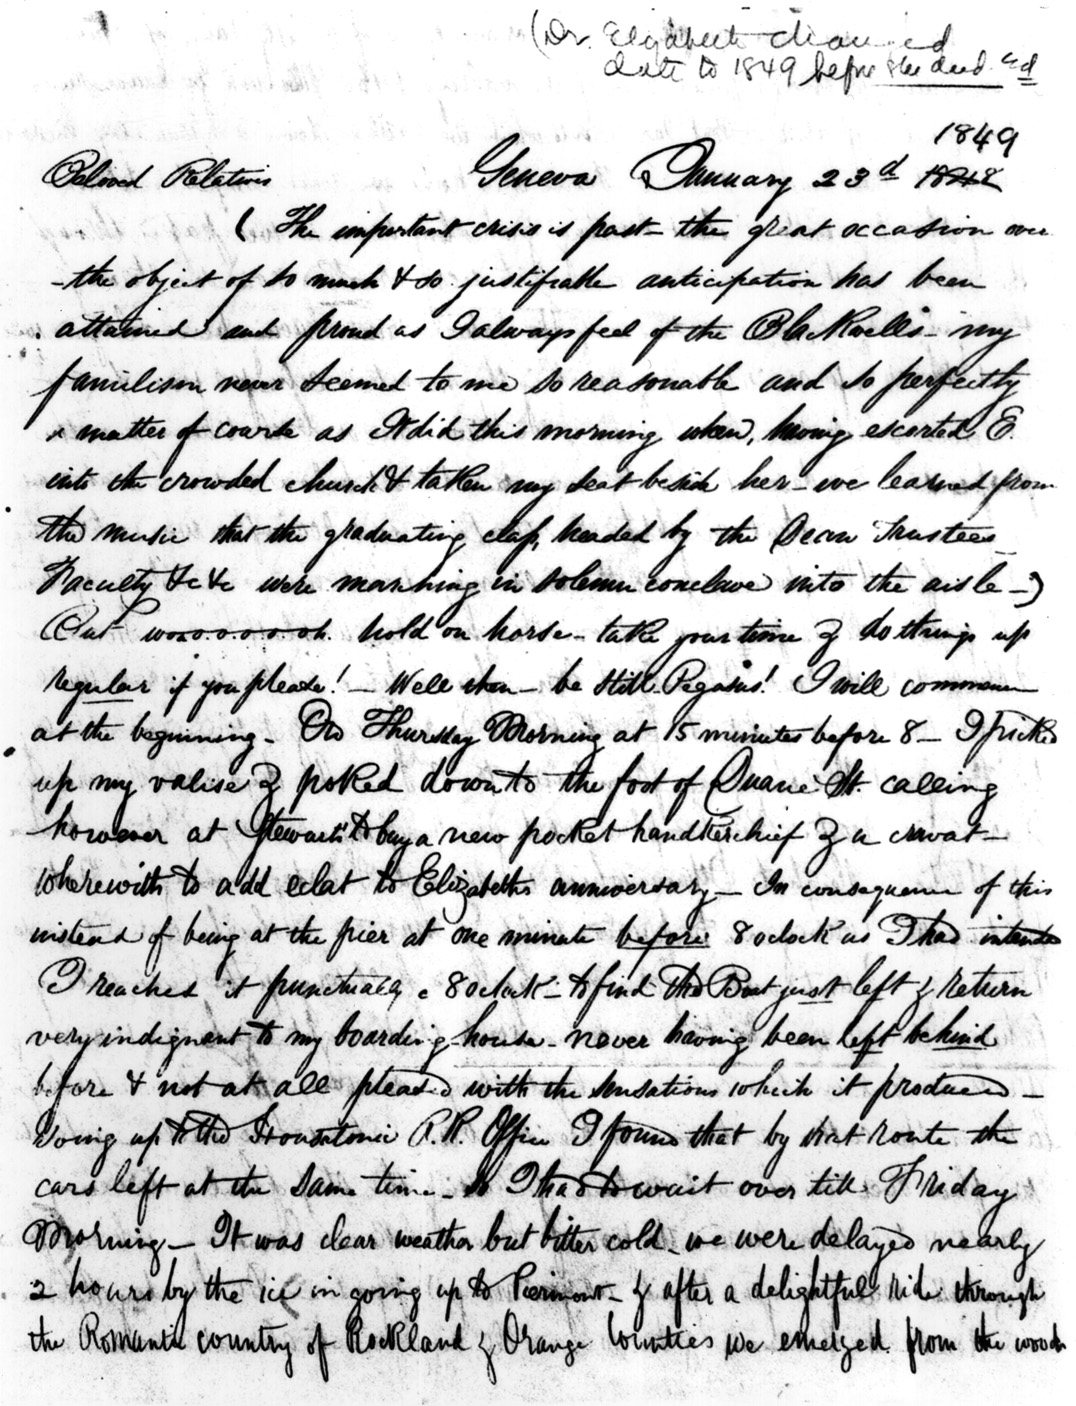 (Dr. Elizabeth changed
date to 1849 before she died. Ed
1849
Beloved Relatives Geneva January 23d 1848
( The important crisis is past - the great occasion over
- the object of so much & so justifiable anticipation has been
attained and proud as I always feel of the Blackwells - my
familism never seemed to me so reasonable and so perfectly
a matter of course as It did this morning when, having escorted E.
into the crowded church & taken my seat beside her - we learned from
the music that the graduating class, headed by the Dean Trustees
Faculty &c &c were marching in solemn conclave into the aisle -)
But woooooooh. hold on horse - take your time & do things up
regular if you please! - Well then - be still Pegasus! I will commence
at the beginning - On Thursday Morning at 15 minutes before 8 - I picked
up my valise & poked down to the foot of Duane St. calling
however at Stewarts to buy a new pocket handkerchief & a cravat -
wherewith to add eclat to Elizabeths anniversary - In consequence of this
instead of being at the pier at one minute before 8 oclock as I had intended
I reached it punctually @ 8 oclock - to find the Boat just left & return
very indignant to my boarding house - never having been left behind
before & not at all pleased with the sensations which it produced -
Going up to the Housatonic R.R. Office I found that by that route the
cars left at the same time - so I had to wait over till Friday
Morning - It was clear weather but bitter cold - we were delayed nearly
2 hours by the ice in going up to Piermont - & after a delightful ride through
the Romantic country of Rockland & Orange Counties we emerged from the woods